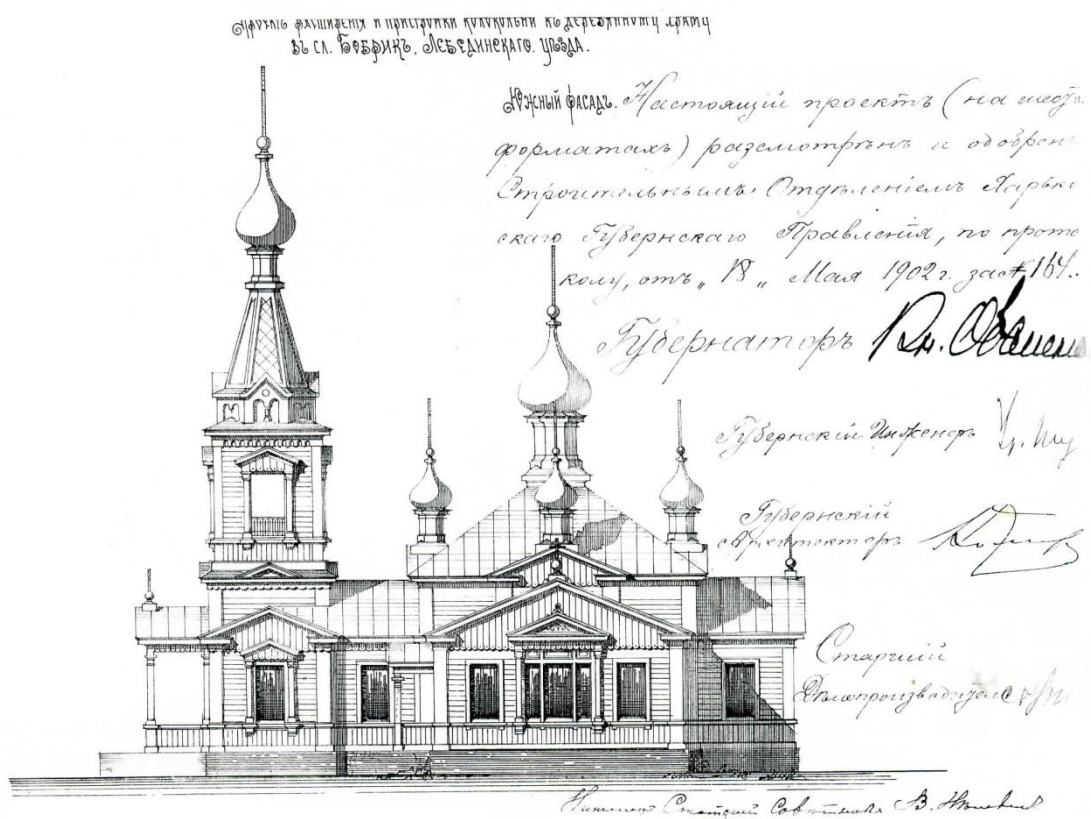 Проектъ расширенія и пристройки колокольни къ деревянному храму
въ сл. Бобрикъ, Лебединскаго уѣзда.
Южный фасадъ.
Настоящій проектъ (на
форматахъ) разсмотрѣнъ и одобрен
Строительнымъ Отдѣленіемъ Харько
скаго Губернскаго Правленія, по прото
колу, отъ „18„ Мая 1902 г. за № 164.
Губернаторъ Кн. Оболенскі
Губернскій Инженеръ
Губернскій
Архитекторъ
Старшій
Дѣлопроизводитель
Статскій Совѣтникъ В.